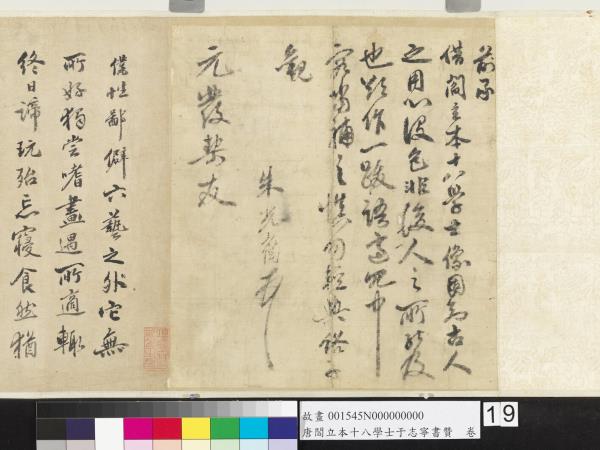 前承
借閻立本十八學士像因知古人
之用心設色非後人之所能及
也欲作一跋語適冗中
容當補之慎勿輕與俗子
觀
朱光
元發契友
僕性鄙僻六藝之外它無
所好獨嘗嗜畫遇所適輒
終日諦玩殆忘寢食然猶
故畫 001545N000000000
唐閻立本十八學士于志寧書贊 卷
19